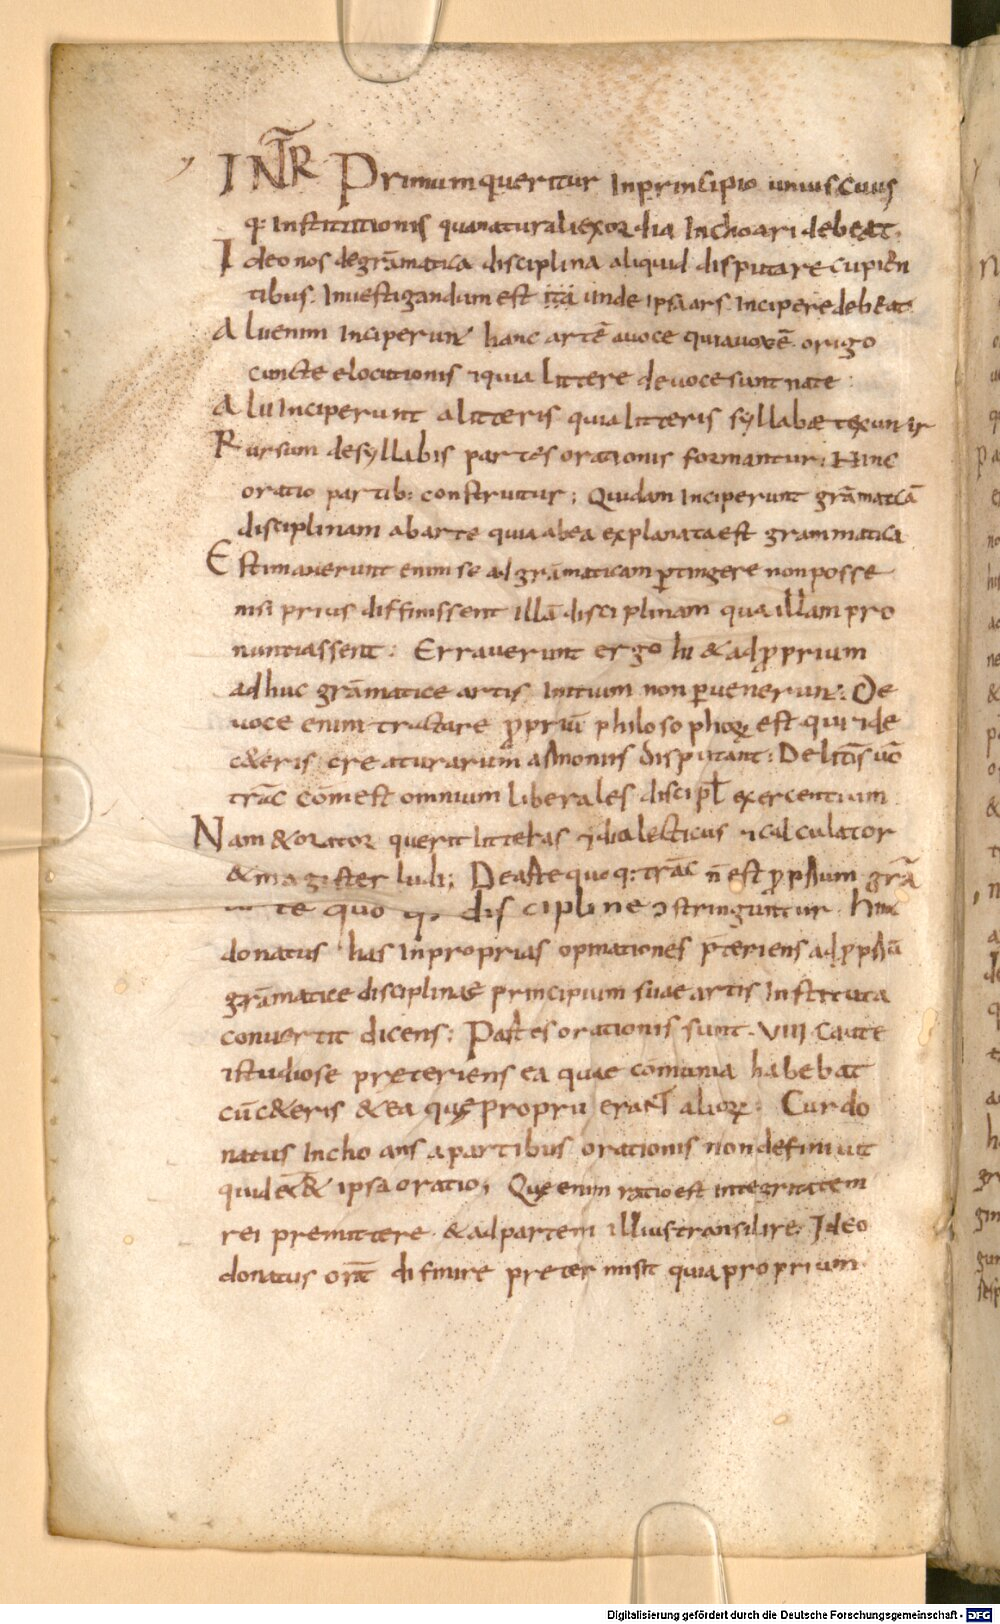 INT̄R Primum queritur Inprincipio uniuscuius
q: Institutionis quanaturali exordia Inchoari debeat.
Ideo nos degrāmatica disciplina aliquid disputare cupien
tibus. Inuestigandum est unde ipsa ars. Incipere debeat
Alii enim Inciperunt hanc artē auoce quia uox ē. origo
cuncte elocutionis & quia littere de uoce sunt nate:
Alii Inciperunt a litteris quia litteris syllabæ texuntur
Rursum desyllabis partes orationis formantur. Hinc
oratio partib: construitur; Quidam Inciperunt grāmaticā
disciplinam ab arte quia ab ea explanata est grammatica
Estimauerunt enim se ad grāmaticam ꝑtingere non posse
nisi prius diffinissent illā disciplinam qua illam pro
nuntiassent: Errauerunt ergo hi & ad ꝓprium
adhuc grāmatice artis Initium non ꝑuenerunt: De
uoce enim tractare ꝓpriū philosophoꝝ est. qui & de
c&eris creaturarum armoniis disputant: De litīs uō
trāc com̄ est omnium liberales discipl̄ exercentium
Nam & orator querit litteras & dialecticus & calculator
& magister ludi; De arte quoq: trāc n̄ est ꝓprium grā
te quo q. discipline ɔstringuntur. hinc
donatus has Inproprias opinationes p̄teriens ad ꝓpriū
grāmatice disciplinae principium suae artis Instituta
conuertit dicens: Partes orationis sunt. VIII. Caute
& studiose preteriens ea quae com̄unia habebat
cū c&eris & ea quę propria erant alioꝝ. Cur do
natus Inchoans a partibus orationis non definiuit
quid ess& ipsa oratio; Quę enim ratio est integritatem
rei premittere. & ad partem illius transilire; Ideo
donatus orāt difinire pretermisit quia proprium
Digitalisierung gefördert durch die Deutsche Forschungsgemeinschaft - DFG